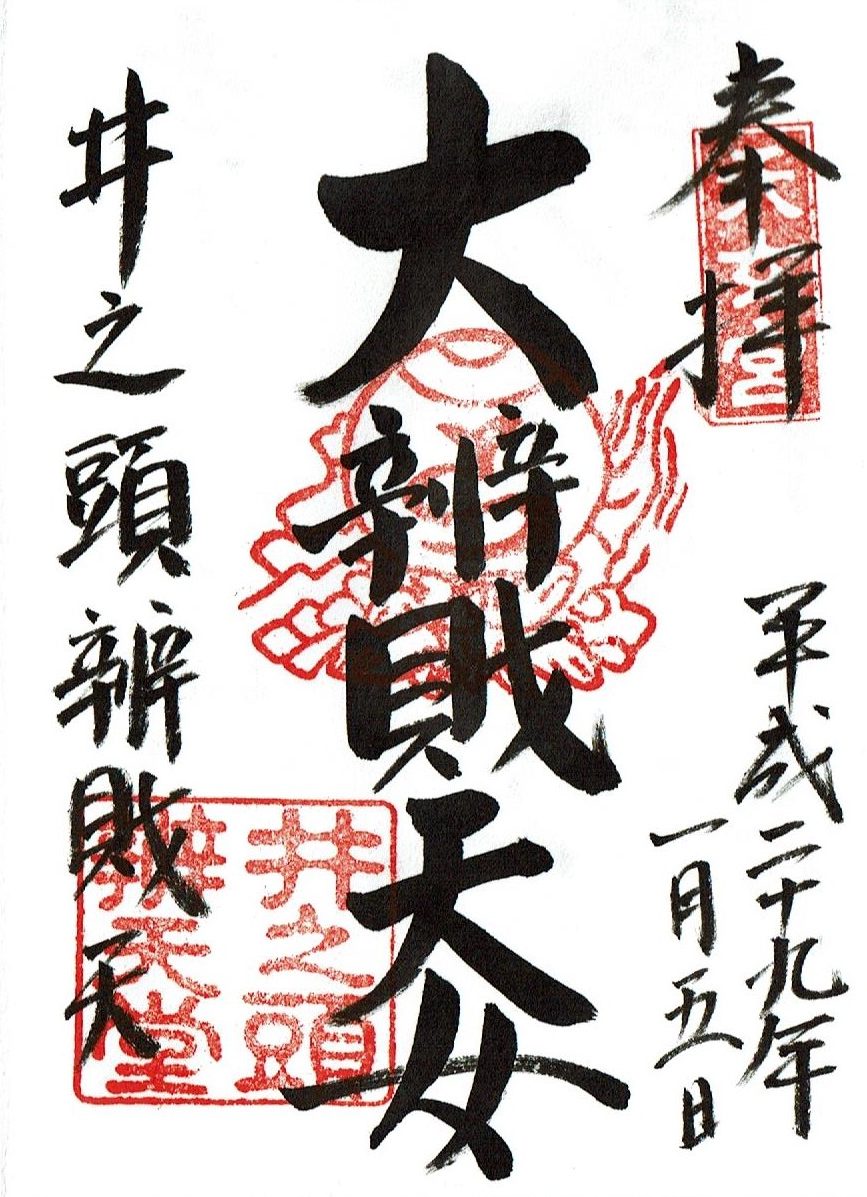 奉拝
平成二十九年
一月五日
大辨財天女
井之頭辨財天
井之頭
辨天堂